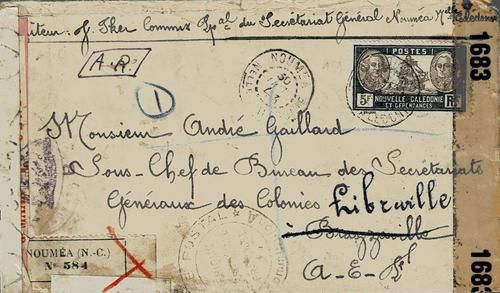 iteur: J. Ther Commis Ppal du Secrétariat Général Nouméa Nelle Calédonie
A.R.
1
NOUMÉA
POSTES
5F
NOUVELLE CALEDONIE
ET DEPENDANCES
RF
1683
Monsieur André Gaillard
Sous-Chef de Bureau des Secrétariats
Généraux des Colonies Libreville
Brazzaville
A-E-F
NOUMÉA (N.-C.)
No 584
POSTAL
1683